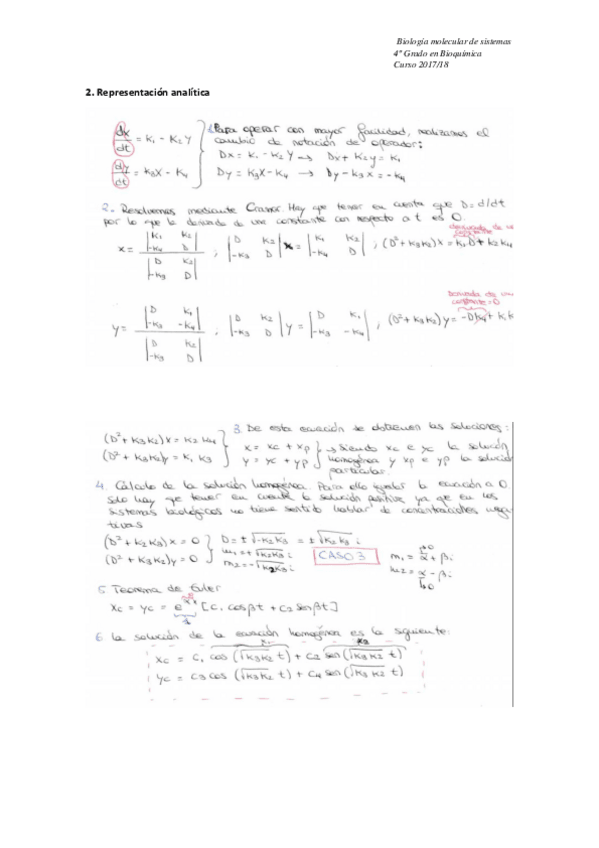 Biología molecular de sistemas
4º Grado en Bioquímica
Curso 2017/18
2. Representación analítica
dx/dt = K1 - K2 Y
dy/dt = K3X - K4
1. Para operar con mayor facilidad, realizamos el
cambio de notación de operador:
Dx = K1 - K2 Y → Dx + K2y = K1
Dy = K3X - K4 → Dy - K3 x = -K4
2.- Resolvemos mediante Cramer. Hay que tener en cuenta que D = d/dt
por lo que la derivada de una constante con respecto a t es 0.
derivada de
x = |K1 K2; -K4 D| / |D K2; -K3 D| ; |D K2; -K3 D| x = |K1 K2; -K4 D| ; (D² + K3K2) x = K1 D + K2 K4
derivada de
constante = 0
y = |D K1; -K3 -K4| / |D K2; -K3 D| ; |D K2; -K3 D| y = |D K1; -K3 -K4| ; (D² + K3K2) y = -DK4 + K1 K
3. De esta ecuación se obtienen las soluciones:
(D² + K3K2) x = K2 K4
(D² + K3K2) y = K1 K3
x = xc + xp
y = yc + yp
→ siendo xc e yc la solución
homogénea y xp e yp la solución
particular.
4. Cálculo de la solución homogénea. Para ello igualar la ecuación a 0
solo hay que tener en cuenta la solución positiva ya que en los
sistemas biológicos no tiene sentido hablar de concentraciones nega
tivas
(D² + K2K3) x = 0
(D² + K3K2) y = 0
D = ± √-K2K3 = ± √K2K3 i
m1 = + √K2K3 i
m2 = - √K2K3 i
CASO 3
m1 = α + βi
m2 = α - βi
5. Teorema de Euler
xc = yc = e^αx [C1 cos βt + C2 sen βt]
1
6. La solución de la ecuación homogénea es la siguiente:
xc = C1 cos (√K3K2 t) + C2 sen (√K3K2 t)
yc = C3 cos (√K3K2 t) + C4 sen (√K3K2 t)